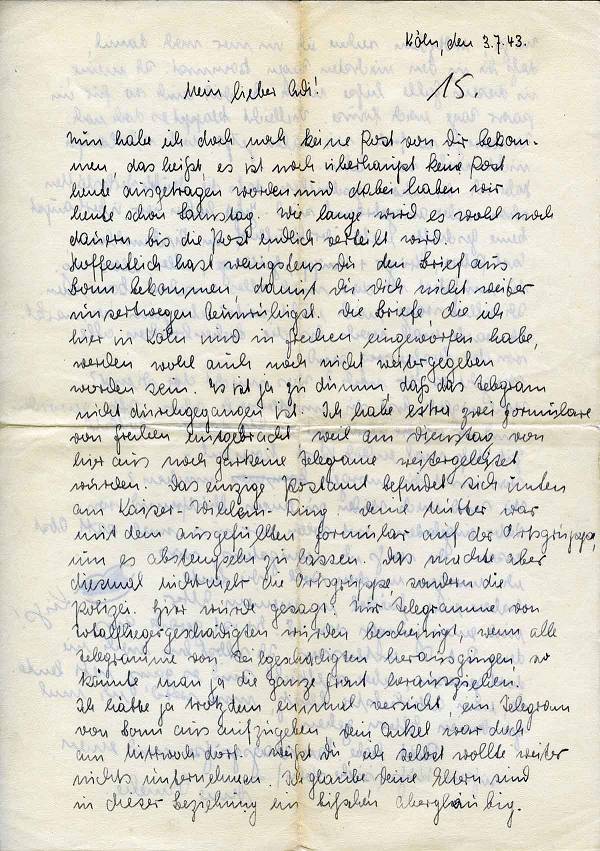 Köln, den 3.7.43.
Mein lieber Adi!
15.
Nun habe ich doch noch keine Post von Dir bekom-
men, das heißt, es ist noch überhaupt keine Post
heute ausgetragen worden und dabei haben wir
heute schon Samstag. Wie lange wird es wohl noch
dauern bis die Post endlich verteilt wird.
Hoffentlich hast wenigstens Du den Brief aus
Bonn bekommen, damit Du Dich nicht weiter
unseretwegen beunruhigst. Die Briefe, die ich
hier in Köln und in Frechen eingeworfen habe,
werden wohl auch noch nicht weitergegeben
worden sein. Es ist ja zu dumm, daß das Telegram
nicht durchgegangen ist. Ich habe extra zwei Formulare
von Frechen mitgebracht weil am Dienstag von
hier aus noch garkeine Telegrame weitergeleitet
wurden. Das einzige Postamt befindet sich unten
am Kaiser-Wilhelm-Ring. Deine Mutter war
mit dem ausgefüllten Formular auf der Ortsgruppe,
um es abstempeln zu lassen. Das machte aber
diesmal nicht mehr die Ortsgruppe, sondern die
Polizei. Hier wurde gesagt: Nur Telegramme von
Totalfliegergeschädigten würden bescheinigt, wenn alle
Telegramme von Teilgeschädigten herausgingen, so
könnte man ja die ganze Front herausziehen.
Ich hätte ja trotzdem einmal versucht, ein Telegram
von Bonn aus aufzugeben, Dein Onkel war doch
am Mittwoch dort. Weißt Du, ich selbst wollte weiter
nichts unternehmen. Ich glaube Deine Eltern sind
in dieser Beziehung ein bißchen abergläubig.